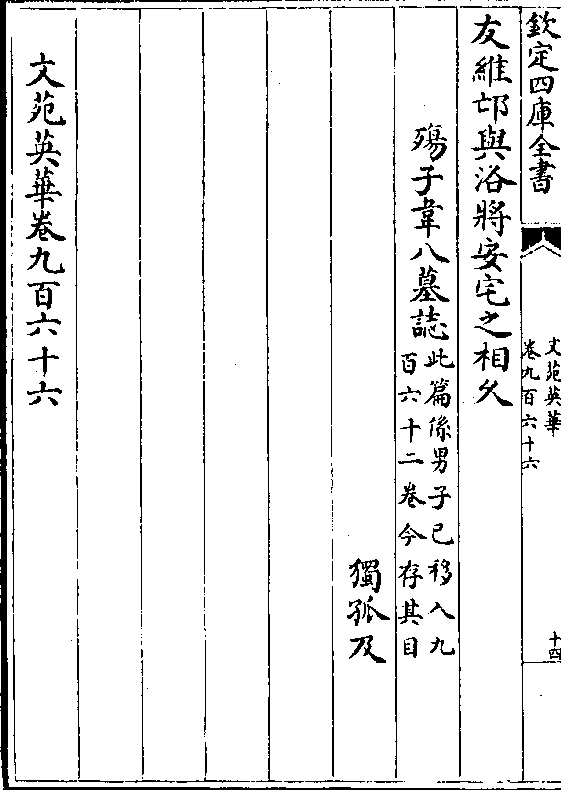 欽定四庫全書
文苑英華
卷九百六十六
十四
友維邙與洛將安宅之相久
殤子韋八墓誌
此篇係男子已移入九
百六十二卷今存其目
獨孤及
文苑英華卷九百六十六